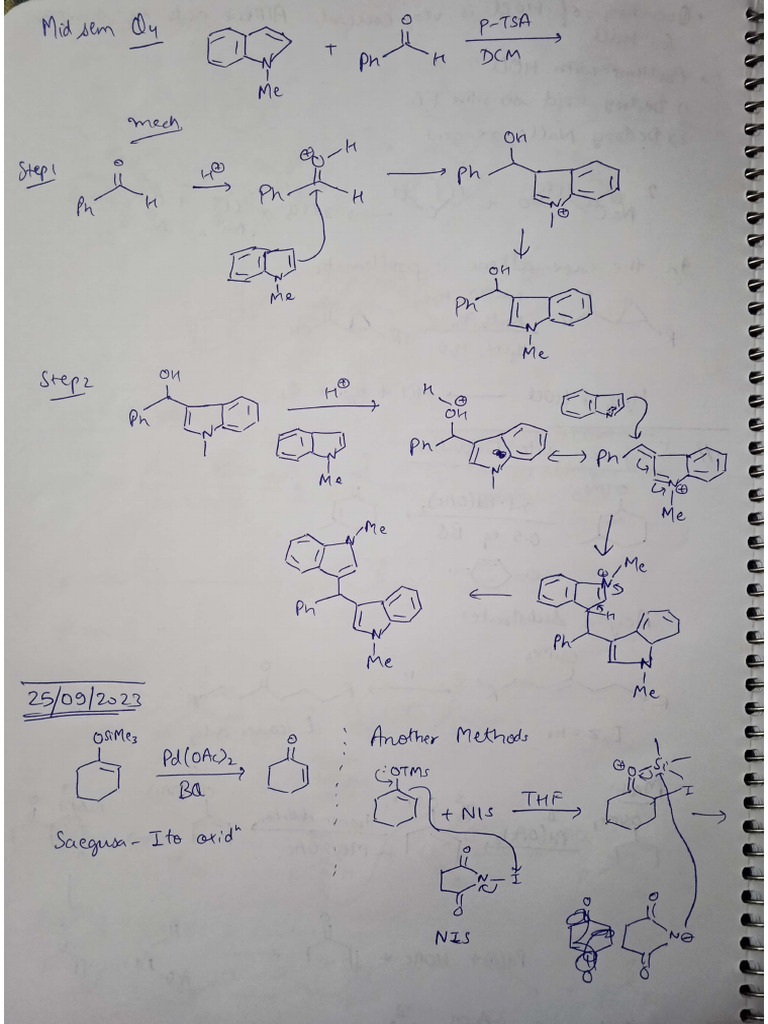 Mid sem Q4
N
Me
+
Ph
O
H
P-TSA
DCM
mech
Step1
O
Ph
H
H⊕
⊕O-H
Ph
H
N
Me
OH
Ph
N⊕
OH
Ph
N
Me
Step2
OH
Ph
N
H⊕
N
Me
H ⊕
OH
Ph
N
Ph
N⊕
Me
⊕N Me
H
Ph
N
Me
N-Me
Ph
N
Me
25/09/2023
OSiMe3
Pd(OAc)2
BQ
O
Saegusa-Ito oxidⁿ
Another Methods
OTMS
+ NIS
THF
⊕O Si
I
O
N-I
O
NIS
O
N⊖
O